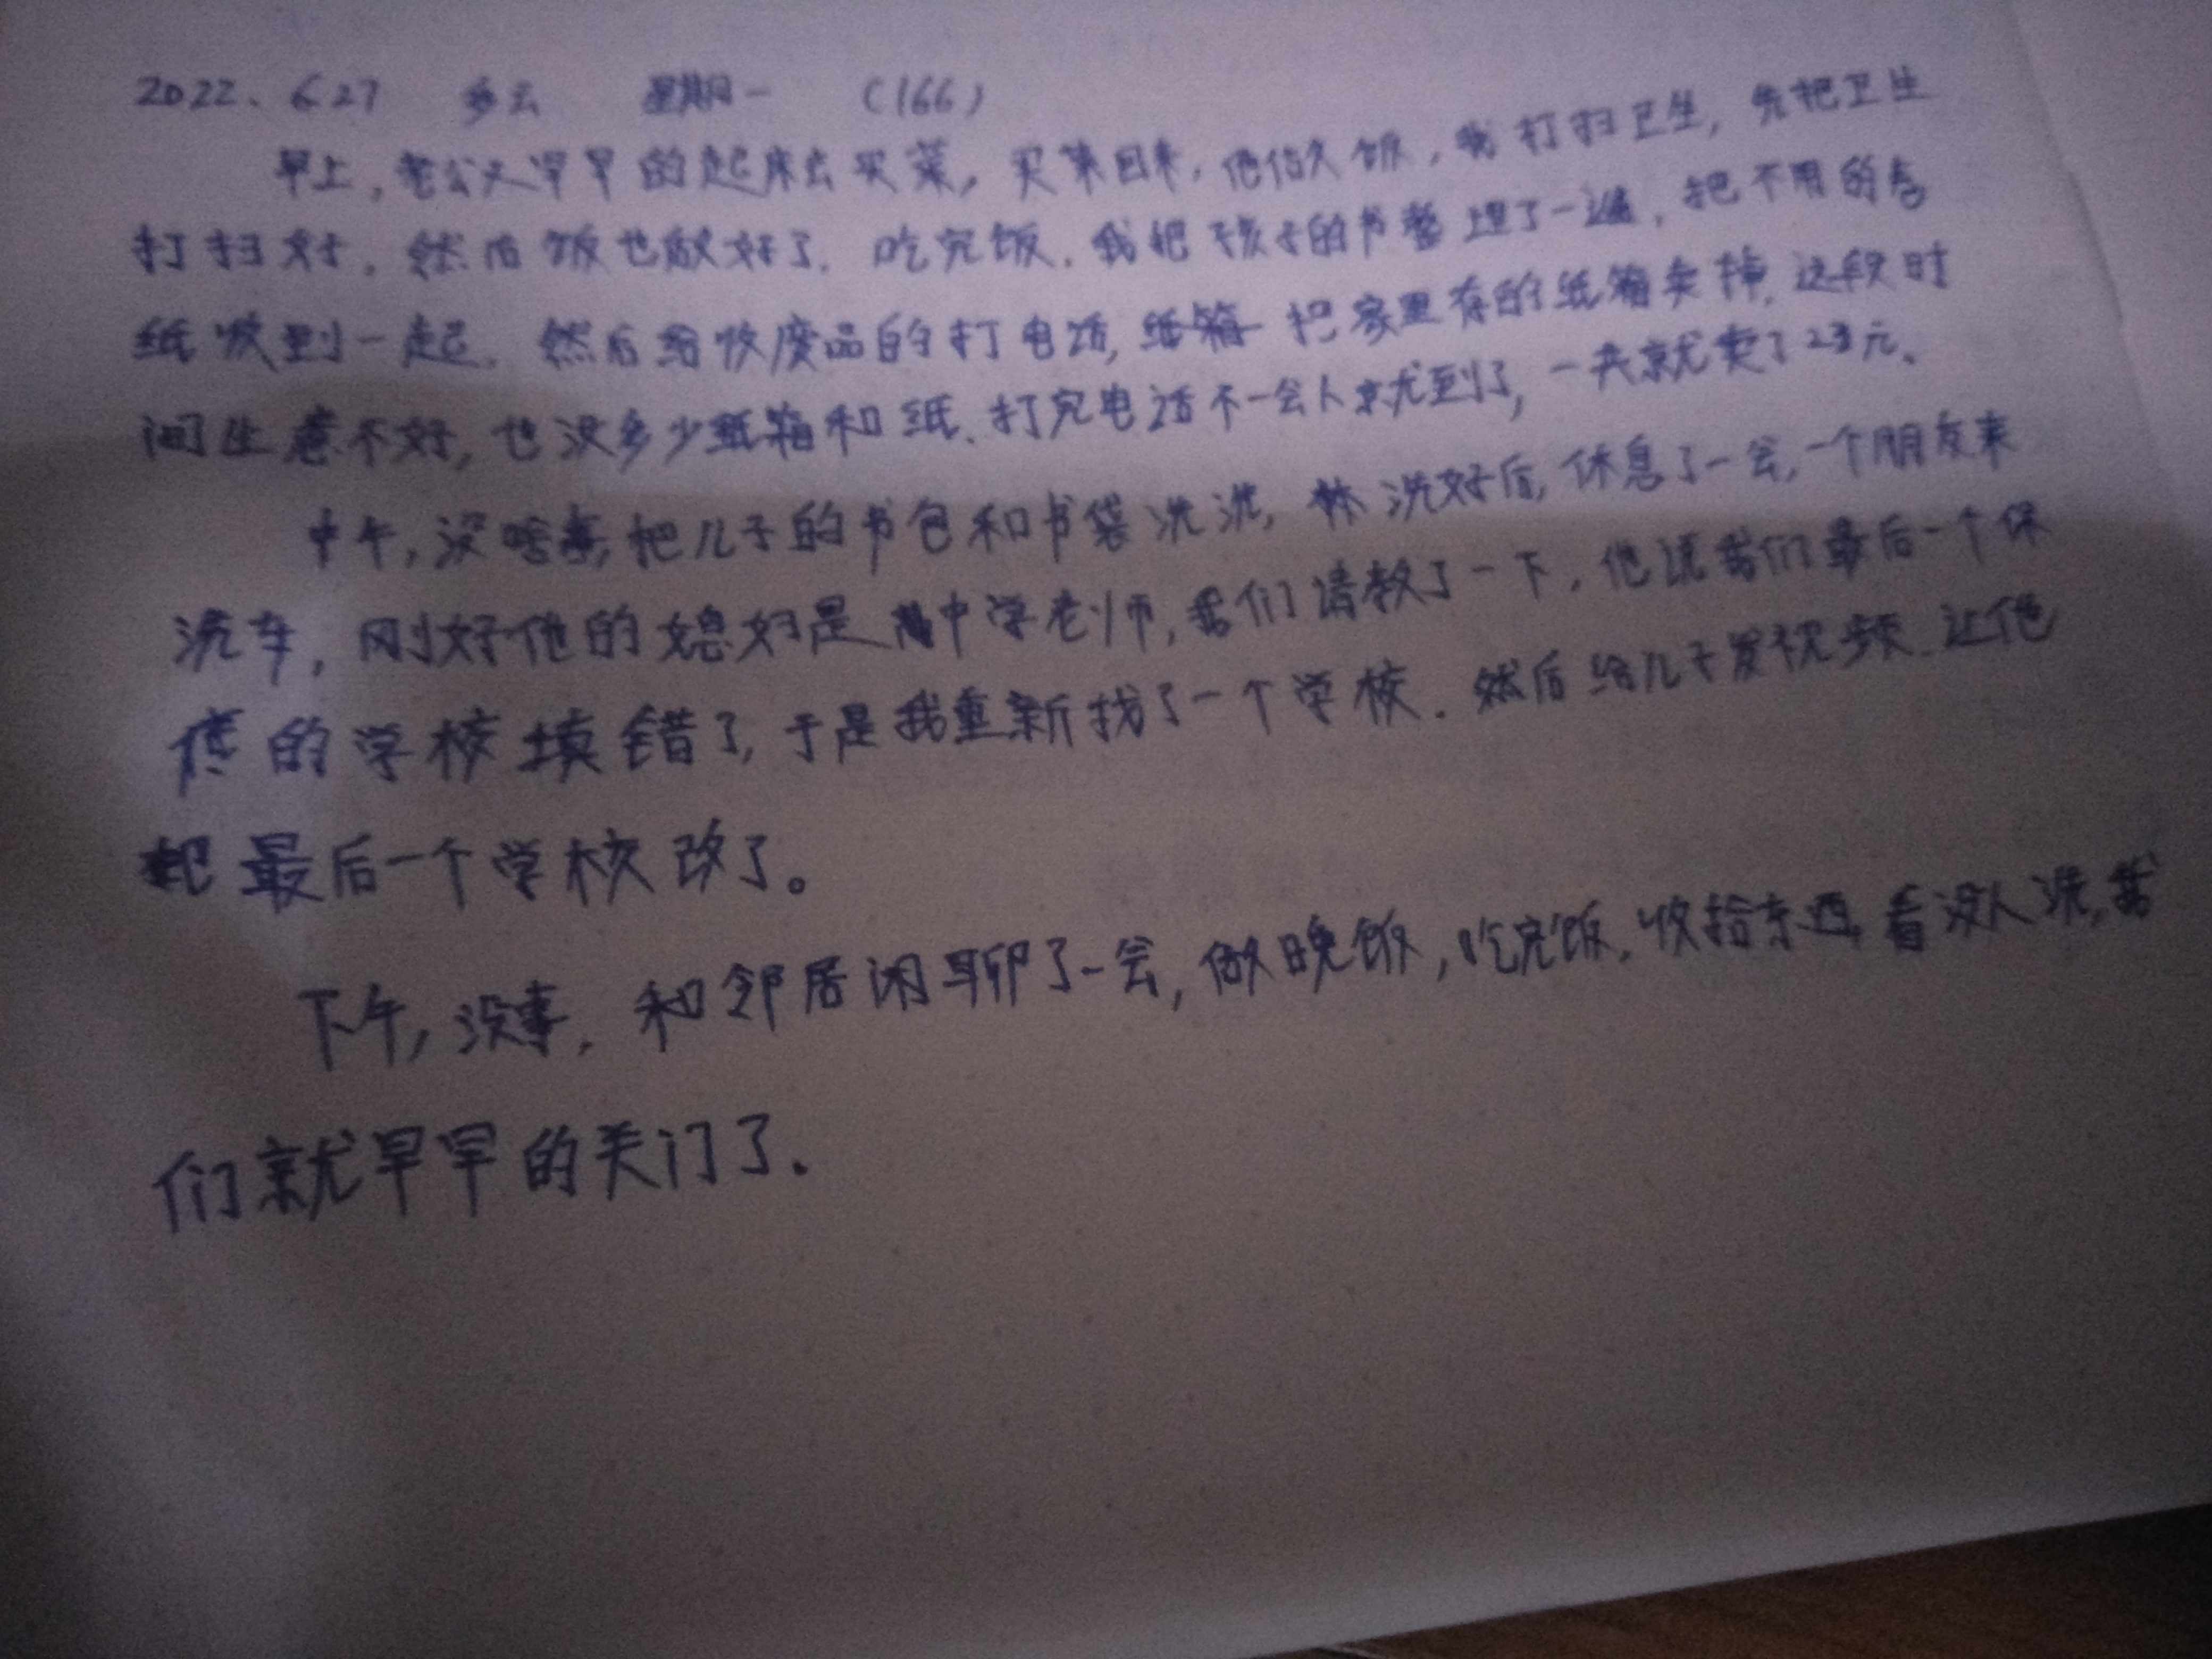 2022、6.27 多云 星期一 (166)
早上，老公又早早的起床去买菜，买菜回来，他做饭，我打扫卫生，先把卫生
打扫好，然后饭也做好了．吃完饭．我把孩子的书整理了一遍．把不用的书
纸收到一起．然后给收废品的打电话，把家里存的纸箱卖掉．这段时
间生意不好，也没多少纸箱和纸．打完电话不一会人就到了，一共就卖了23元、
中午，没啥事，把儿子的书包和书袋洗洗，洗好后，休息了一会，一个朋友来
洗车，刚好他的媳妇是中学老师，我们请教了一下，他说我们最后一个保
底的学校填错了，于是我重新找了一个学校．然后给儿子发视频．让他
把最后一个学校改了。
下午，没事，和邻居闲聊了一会，做晚饭，吃完饭，收拾东西，看没人洗，我
们就早早的关门了．